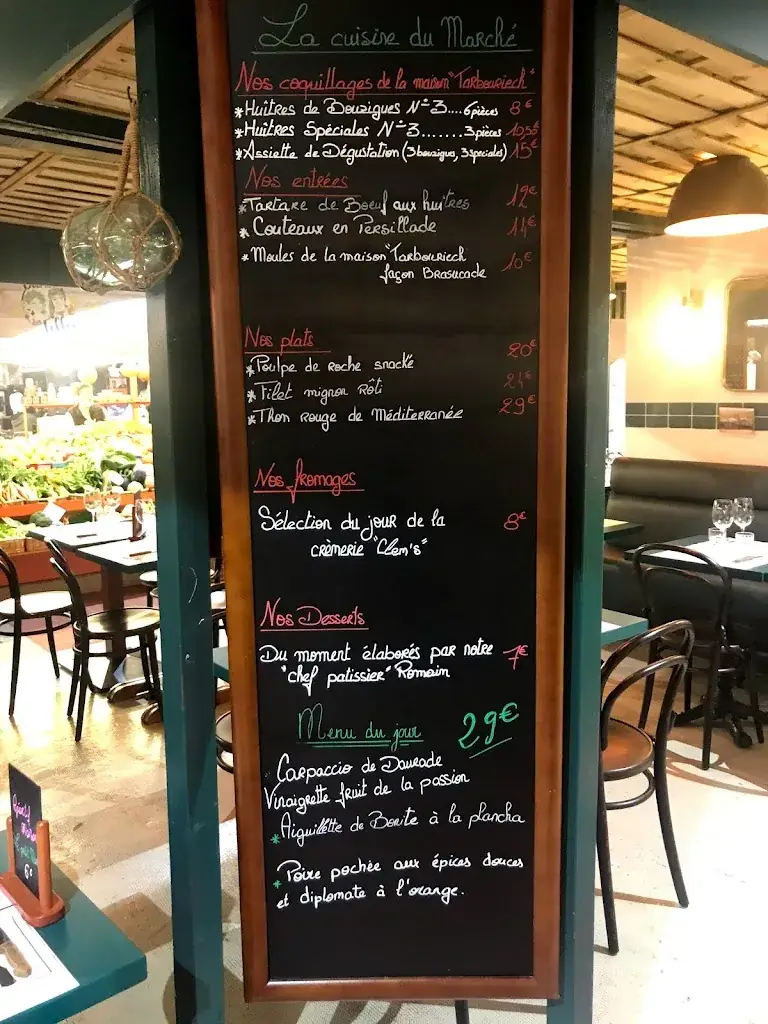 La cuisine du Marché
Nos coquillages de la maison "Tarbouriech"
*Huîtres de Bouzigues N°3....6 pièces 8€
*Huitres Spéciales N°3.......3 pièces 10,50€
*Assiette de Dégustation (3 bouzigues, 3 speciales) 15€
Nos entrées
*Tartare de Boeuf aux huitres 12€
*Couteaux en Persillade 14€
*Moules de la maison "Tarbouriech
façon Brasucade 10€
Nos plats
*Poulpe de roche snacké 20€
*Filet mignon Rôti 24€
*Thon rouge de Méditerranée 29€
Nos fromages
Sélection du jour de la 8€
crèmerie "Clem's"
Nos Desserts
Du moment élaborés par notre 7€
"chef patissier" Romain
Menu du jour 29€
Carpaccio de Daurade
Vinaigrette fruit de la passion
*Aiguillette de Bonite à la plancha
*Poire pochée aux épices douces
et diplomate à l'orange.